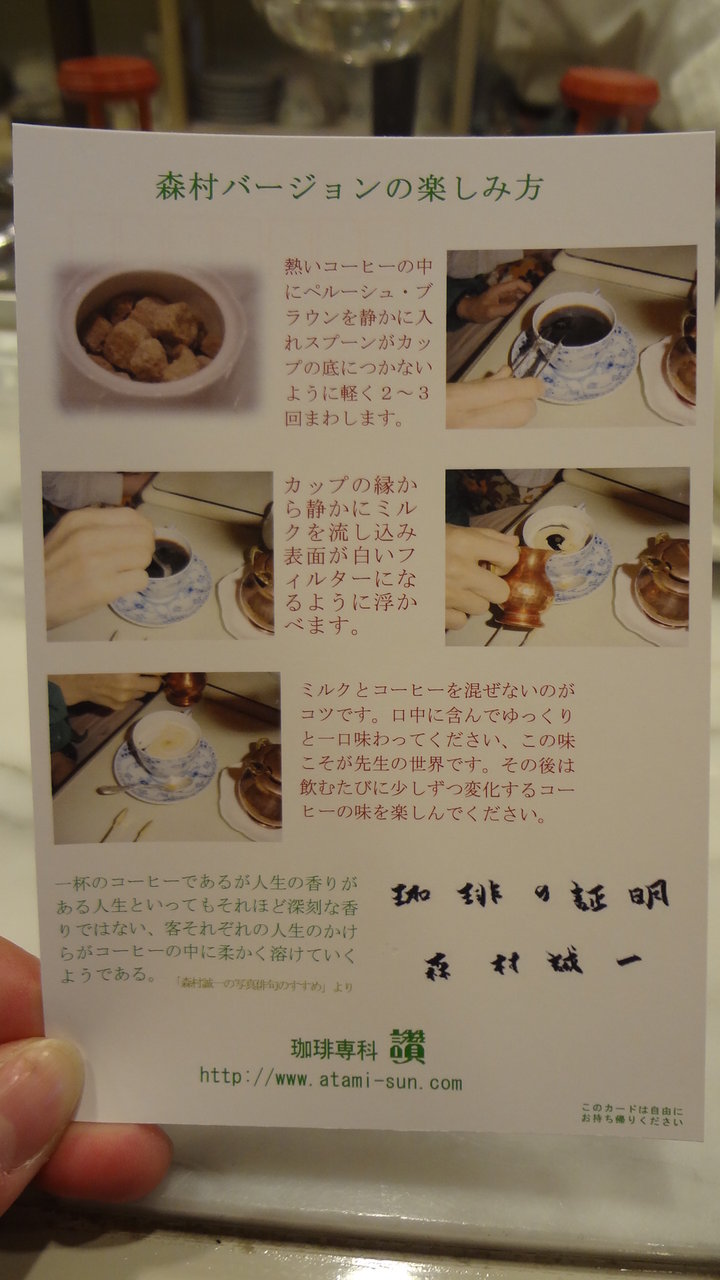 森村バージョンの楽しみ方
熱いコーヒーの中
にペルーシュ・ブ
ラウンを静かに入
れスプーンがカッ
プの底につかない
ように軽く２～３
回まわします。
カップの縁か
ら静かにミル
クを流し込み
表面が白いフ
ィルターにな
るように浮か
べます。
ミルクとコーヒーを混ぜないのが
コツです。口中に含んでゆっくり
と一口味わってください、この味
こそが先生の世界です。その後は
飲むたびに少しずつ変化するコー
ヒーの味を楽しんでください。
一杯のコーヒーであるが人生の香りが
ある人生といってもそれほど深刻な香
りではない、客それぞれの人生のかけ
らがコーヒーの中に柔かく溶けていく
ようである。
「森村誠一の写真俳句のすすめ」より
珈琲の証明
森村誠一
珈琲専科 讃
http://www.atami-sun.com
このカードは自由に
お持ち帰りください